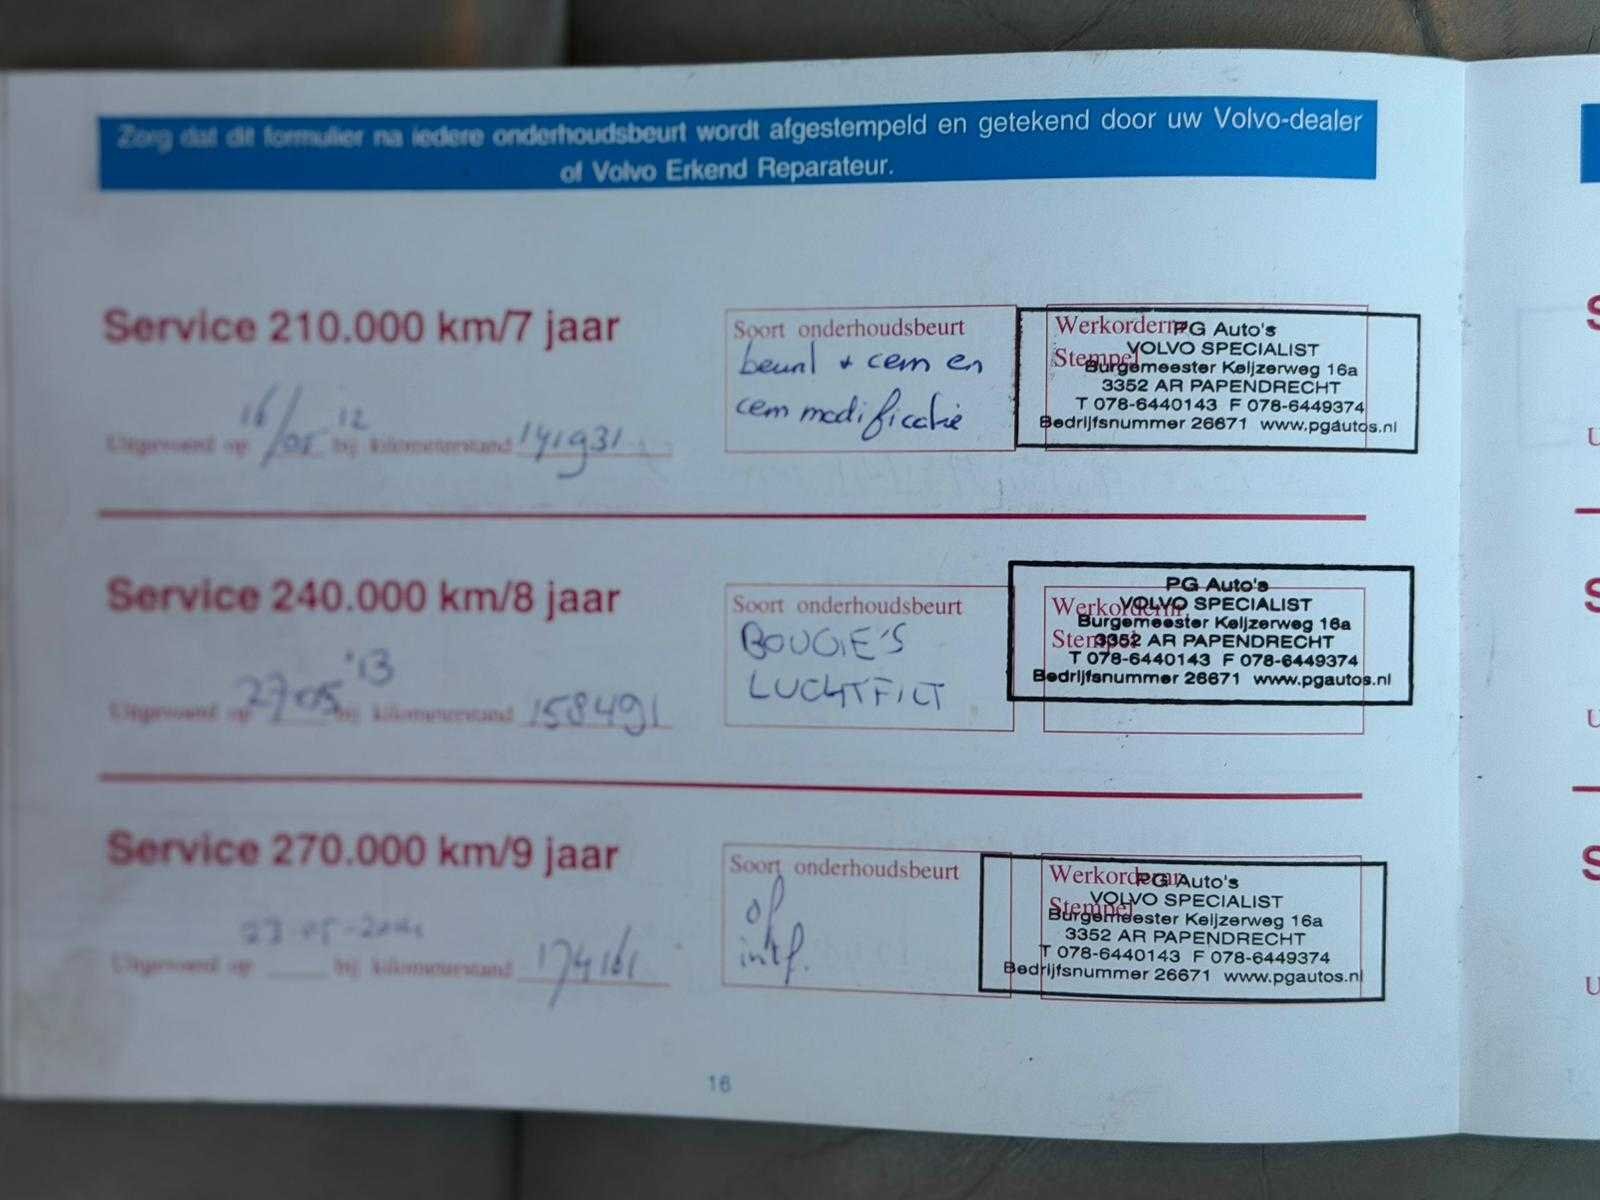 Zorg dat dit formulier na iedere onderhoudsbeurt wordt afgestempeld en getekend door uw Volvo-dealer
of Volvo Erkend Reparateur.
Service 210.000 km/7 jaar
Uitgevoerd op 16/05 '12 bij kilometerstand 141931
Soort onderhoudsbeurt
beurt + cem en
cem modificatie
Werkordernr
Stempel
PG Auto's
VOLVO SPECIALIST
Burgemeester Keijzerweg 16a
3352 AR PAPENDRECHT
T 078-6440143 F 078-6449374
Bedrijfsnummer 26671 www.pgautos.nl
Service 240.000 km/8 jaar
Uitgevoerd op 27-05 '13 bij kilometerstand 158491
Soort onderhoudsbeurt
BOUGIE'S
LUCHTFILT
Werkordernr
Stempel
PG Auto's
VOLVO SPECIALIST
Burgemeester Keijzerweg 16a
3352 AR PAPENDRECHT
T 078-6440143 F 078-6449374
Bedrijfsnummer 26671 www.pgautos.nl
Service 270.000 km/9 jaar
Uitgevoerd op 23-05- bij kilometerstand 174161
Soort onderhoudsbeurt
of
Werkordernr
Stempel
PG Auto's
VOLVO SPECIALIST
Burgemeester Keijzerweg 16a
3352 AR PAPENDRECHT
T 078-6440143 F 078-6449374
Bedrijfsnummer 26671 www.pgautos.nl
16